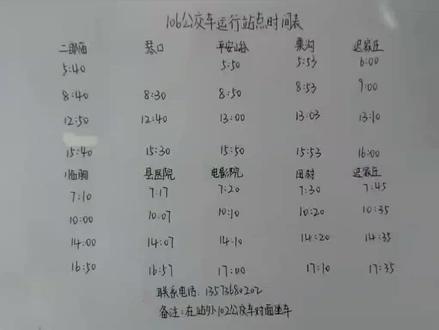 106公交车运行站点时间表
二郎庙 岔口 平安山谷 栗沟 迟家庄
5:40 5:50 5:53 6:00
8:40 8:30 8:50 8:53 9:00
12:50 12:40 13:00 13:03 13:10
15:40 15:30 15:50 15:53 16:00
临朐 县医院 电影院 田村 迟家庄
7:10 7:17 7:20 7:30 7:45
10:00 10:07 10:10 10:20 10:35
14:00 14:07 14:10 14:20 14:35
16:50 16:57 17:00 17:10 17:35
联系电话: 13573680202
备注:在站外102公交车对面坐车